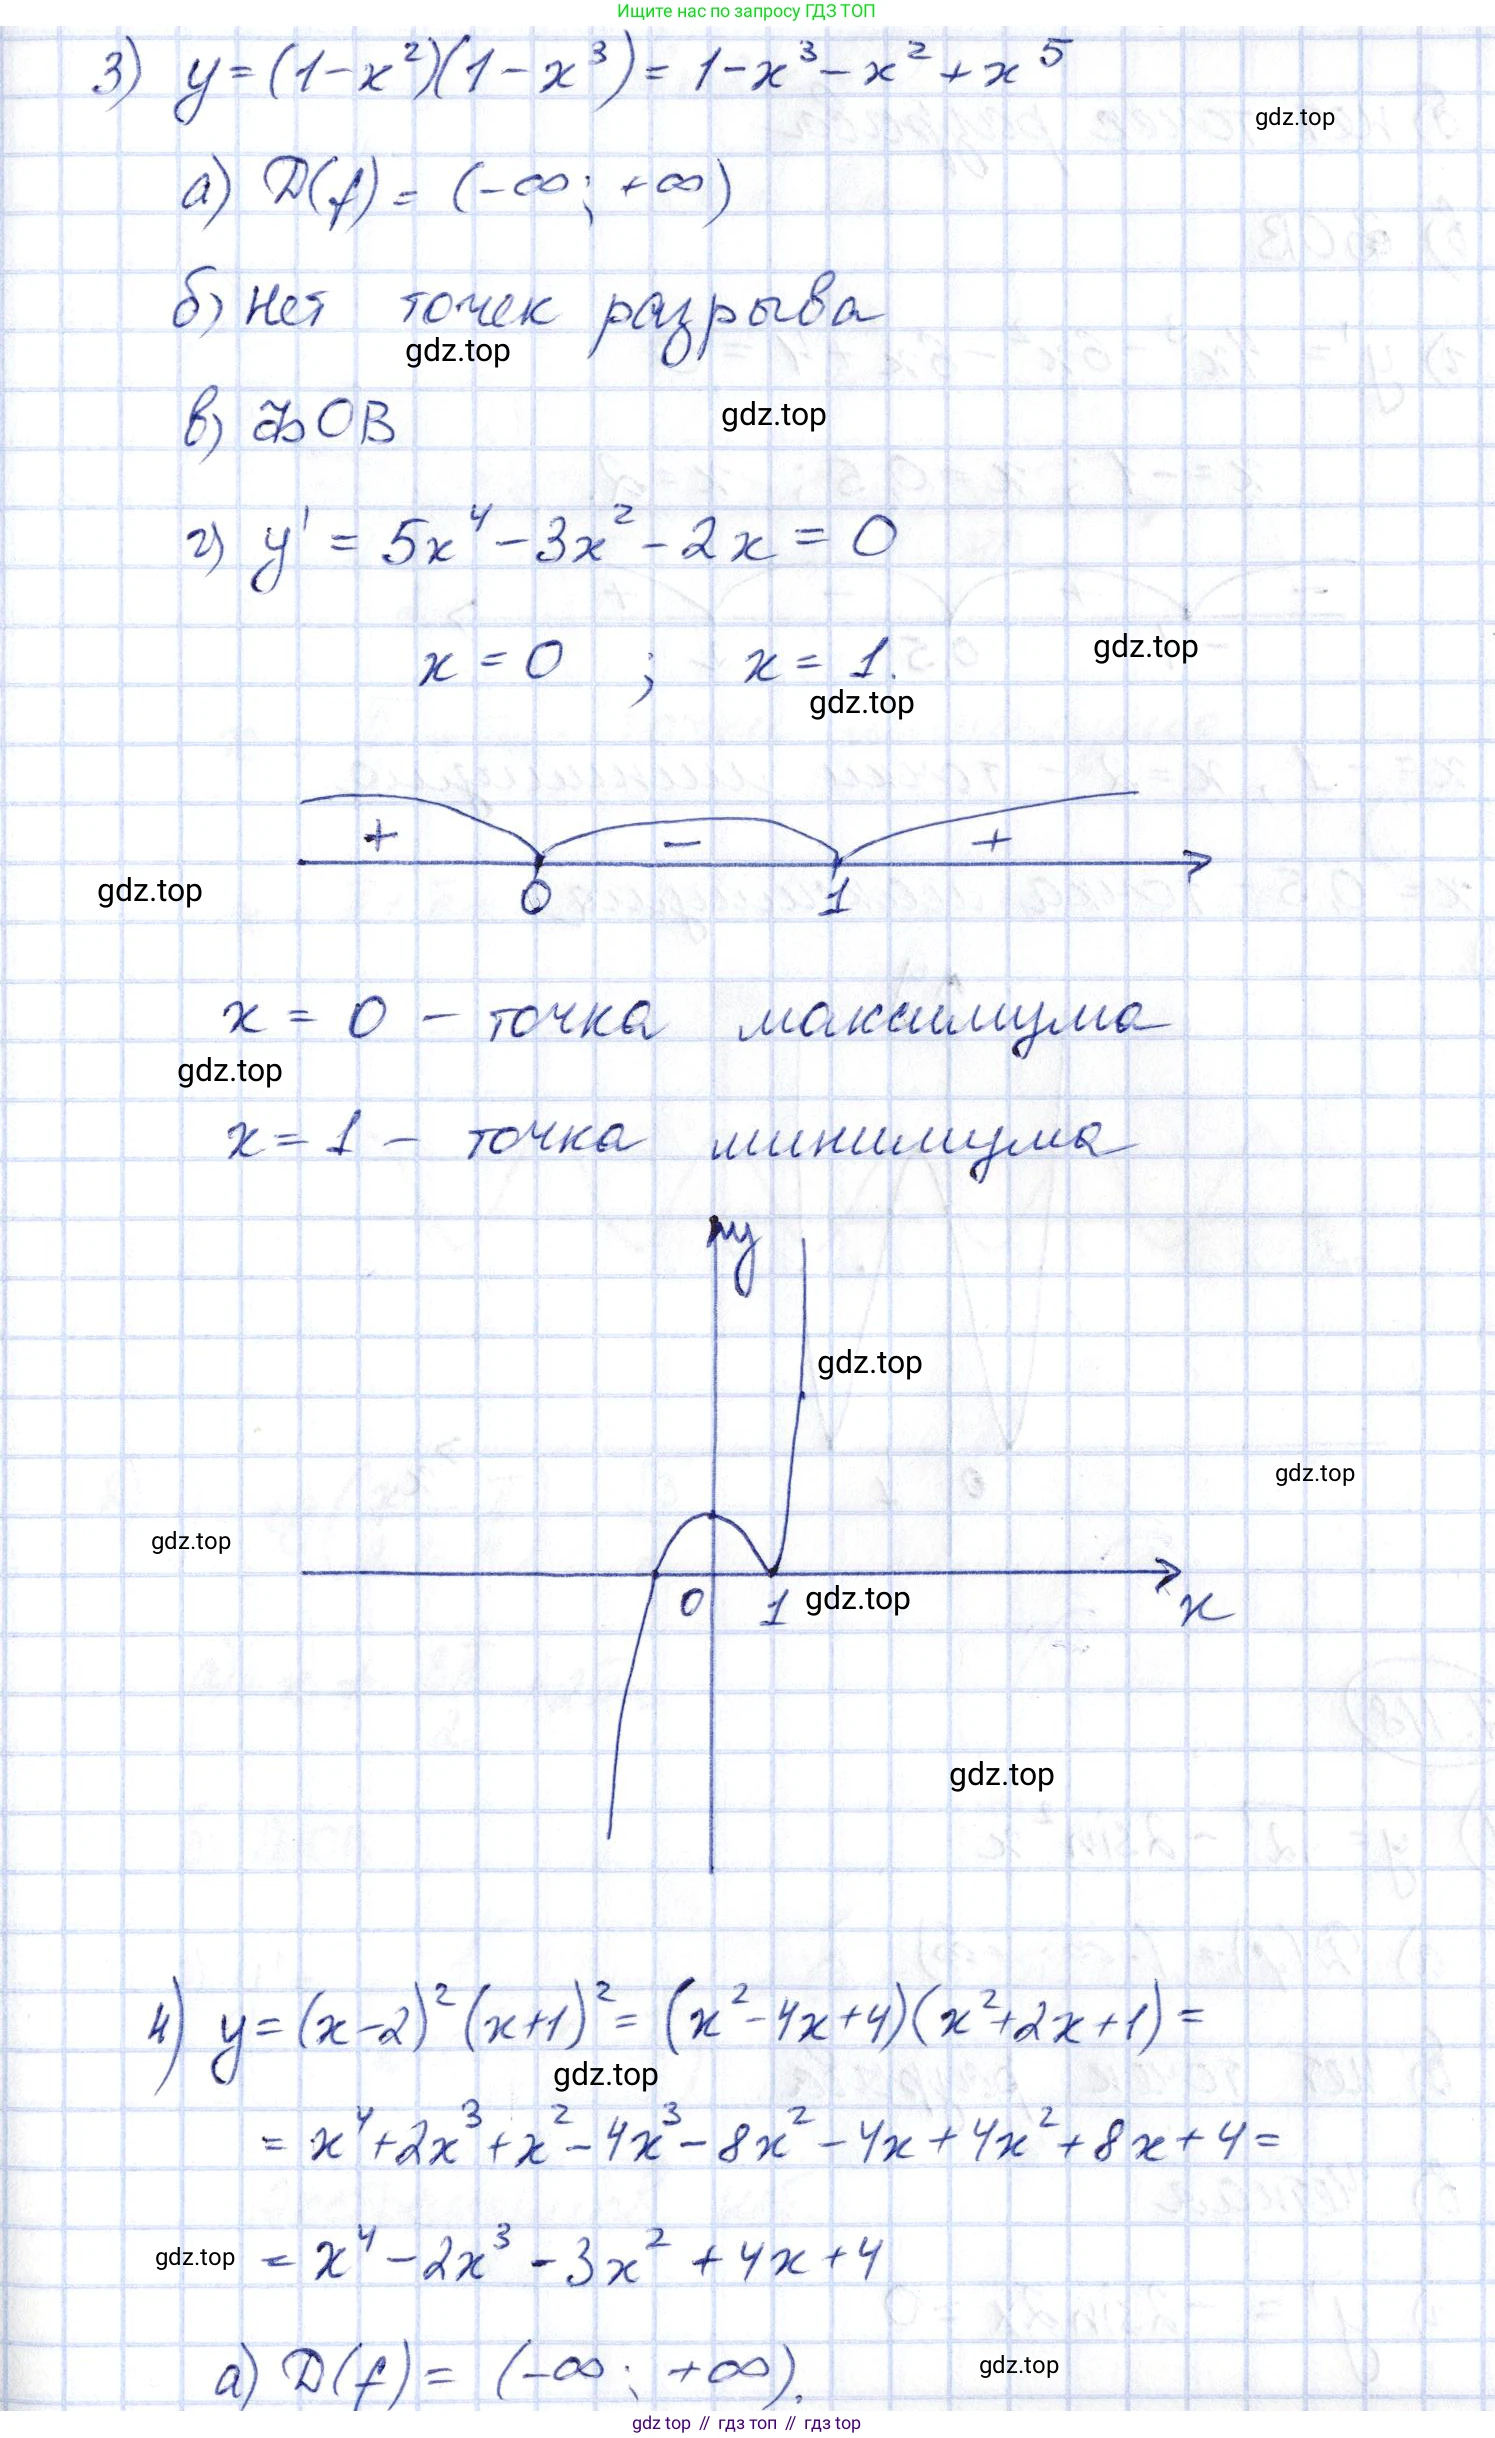 Ищите нас по запросу ГДЗ ТОП
3) y = (1-x²)(1-x³) = 1-x³-x²+x⁵
gdz.top
а) D(f) = (-∞; +∞)
б) нет точек разрыва
gdz.top
в) ОВ
gdz.top
г) y' = 5x⁴-3x²-2x = 0
x = 0 ; x = 1.
gdz.top
gdz.top
+ - +
0 1
gdz.top
x = 0 - точка максимума
gdz.top
x = 1 - точка минимума
y
gdz.top
gdz.top
gdz.top
0 1 gdz.top x
gdz.top
4) y = (x-2)²(x+1)² = (x²-4x+4)(x²+2x+1) =
gdz.top
= x⁴+2x³+x²-4x³-8x²-4x+4x²+8x+4 =
gdz.top = x⁴-2x³-3x²+4x+4
а) D(f) = (-∞; +∞).
gdz.top
gdz top // гдз топ // gdz top